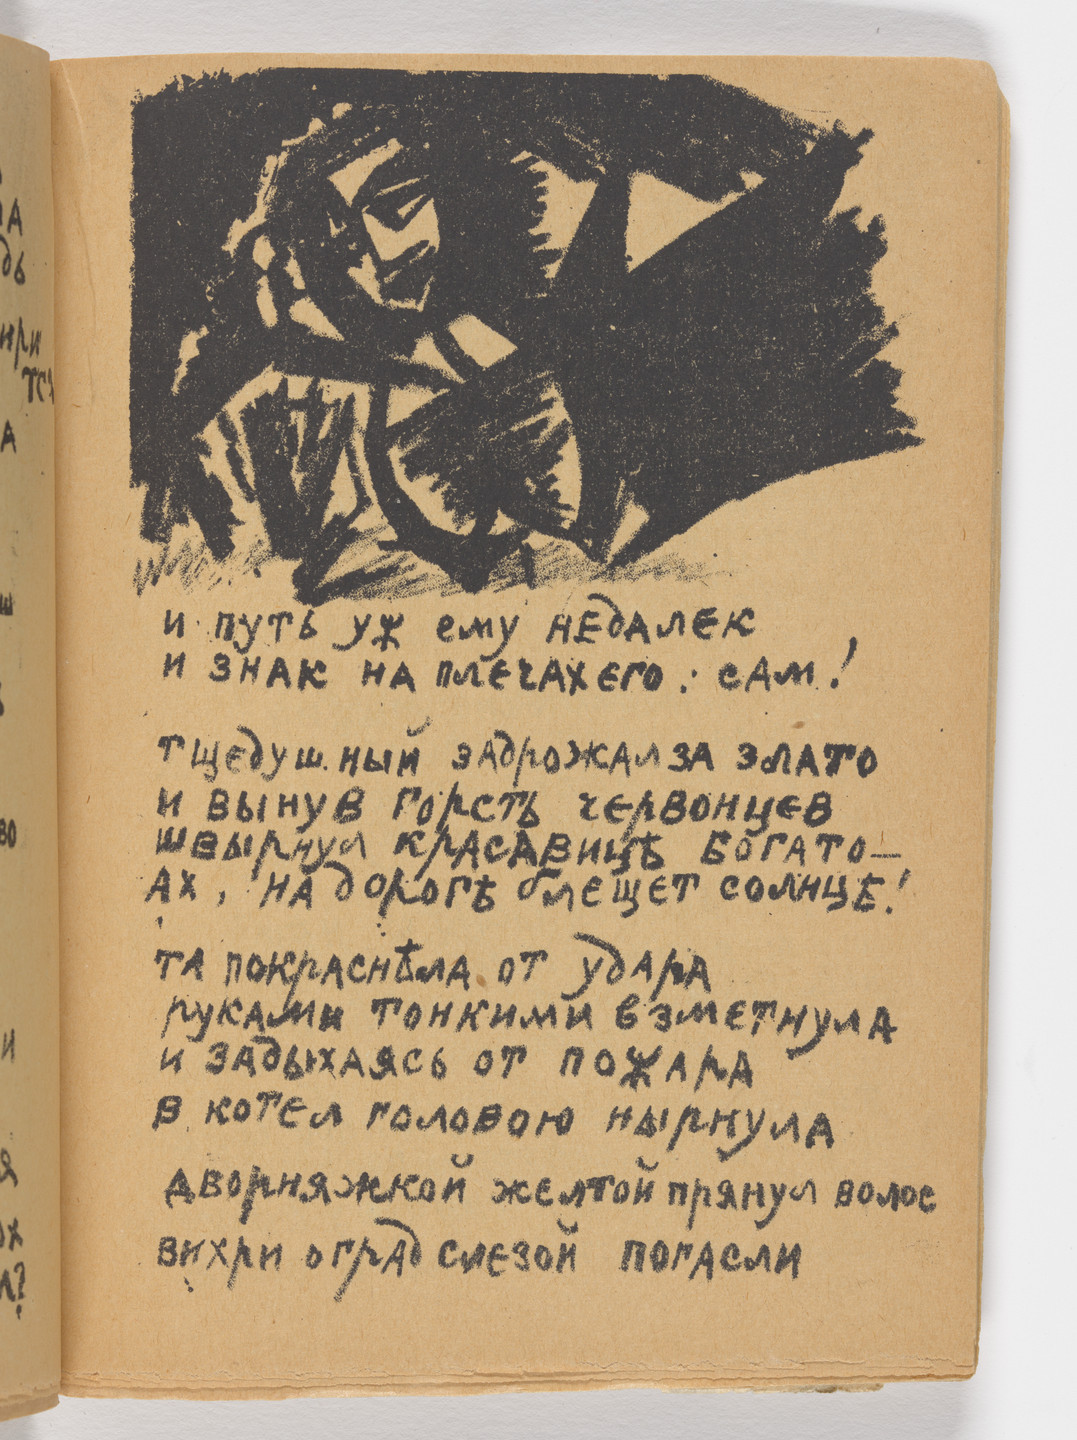 и путь уж ему недалек
и знак на плечах его: сам!
тщедушный задрожал за злато
и вынув горсть червонцев
швырнул красавицѣ богато—
ах, на дорогѣ блещет солнце!
та покраснѣла от удара
руками тонкими взметнула
и задыхаясь от пожара
в котел головою нырнула
дворняжкой желтой прянул волос
вихри оград слезой погасли